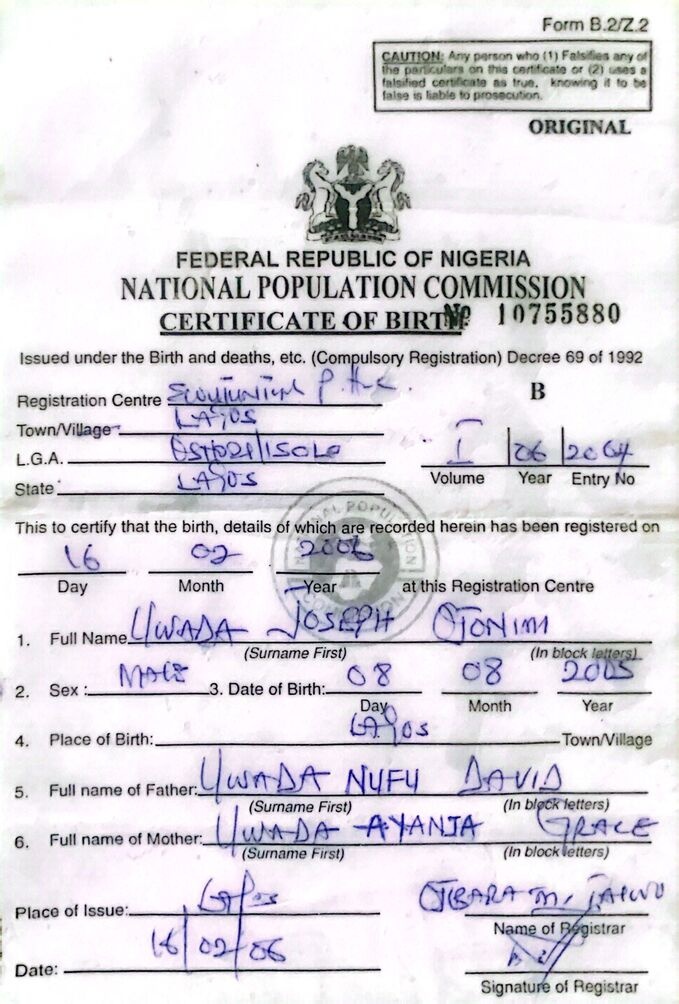 Form B.2/Z.2
CAUTION: Any person who (1) Falsifies any of
the particulars on this certificate or (2) uses a
falsified certificate as true, knowing it to be
false is liable to prosecution.
ORIGINAL
FEDERAL REPUBLIC OF NIGERIA
NATIONAL POPULATION COMMISSION
CERTIFICATE OF BIRTH № 10755880
Issued under the Birth and deaths, etc. (Compulsory Registration) Decree 69 of 1992
Registration Centre P.H.C. B
Town/Village LAGOS
L.G.A. OSHODI/ISOLO I 06 2064
Volume Year Entry No
State LAGOS
NATIONAL POPULATION COMMISSION
This to certify that the birth, details of which are recorded herein has been registered on
16 02 2006
Day Month Year at this Registration Centre
1. Full Name UWADA JOSEPH OJONIMI
(Surname First) (In block letters)
2. Sex: MALE 3. Date of Birth: 08 08 2005
Day Month Year
4. Place of Birth: LAGOS Town/Village
5. Full name of Father: UWADA NUFU DAVID
(Surname First) (In block letters)
6. Full name of Mother: UWADA AYANJA GRACE
(Surname First) (In block letters)
Place of Issue: LAGOS M. TAIWO
Name of Registrar
Date: 16/02/06
Signature of Registrar